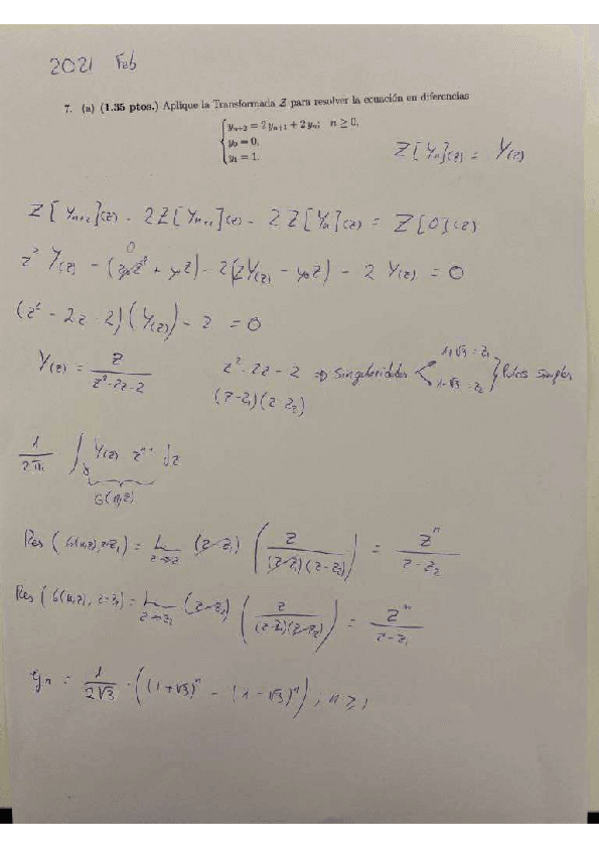 2021 Feb
7. (a) (1.35 ptos.) Aplique la Transformada Z para resolver la ecuación en diferencias
{ y_{n+2} = 2y_{n+1} + 2y_n; n ≥ 0,
y_0 = 0,
y_1 = 1.
Z[y_n](z) = Y(z)
Z[y_{n+2}](z) - 2Z[y_{n+1}](z) - 2Z[y_n](z) = Z[0](z)
z² Y(z) - (y_0z² + y_1z) - 2(zY(z) - y_0z) - 2 Y(z) = 0
0
(z² - 2z - 2)(Y(z)) - z = 0
Y(z) = z / (z² - 2z - 2) z² - 2z - 2 ⇒ Singularidades < 1+√3 = z_1 1-√3 = z_2 } Polos simples
(z-z_1)(z-z_2)
1/(2πi) ∫_γ Y(z) z^{n-1} dz
G(n,z)
Res(G(n,z), z=z_1) = L_{z→z_1} (z-z_1) ( z / ((z-z_1)(z-z_2)) ) = z^n / (z-z_2)
Res(G(n,z), z=z_2) = L_{z→z_2} (z-z_2) ( z / ((z-z_1)(z-z_2)) ) = z^n / (z-z_1)
y_n = 1/(2√3) · ((1+√3)^n - (1-√3)^n), n ≥ 1